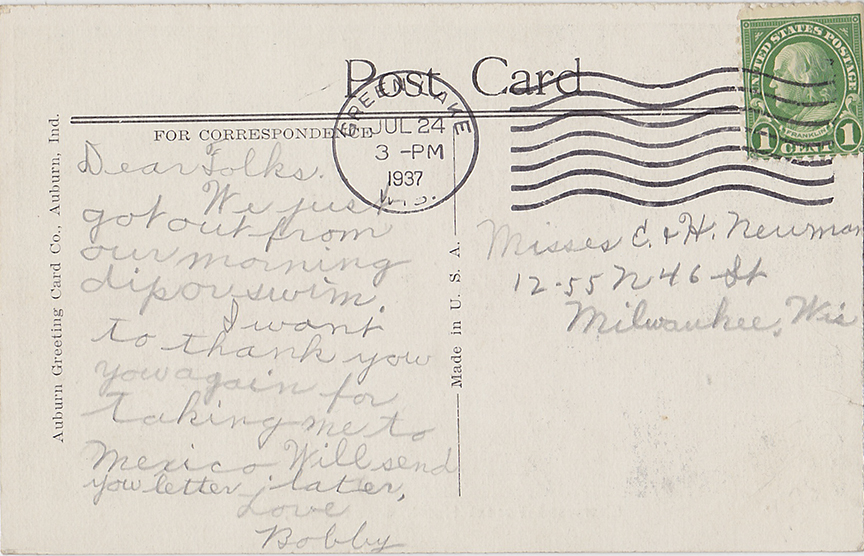 Post Card
FOR CORRESPONDENCE
GREEN LAKE
JUL 24
3 -PM
1937
WIS.
UNITED STATES POSTAGE
FRANKLIN
1 CENT 1
Dear Folks.
We just
got out from
our morning
dip or swim.
I want
to thank you
you again for
taking me to
Mexico Will send
you letter later,
Love
Bobby
Misses E. & H. Newman
12-55 N 46 St
Milwaukee, Wis
Made in U. S. A.
Auburn Greeting Card Co., Auburn, Ind.